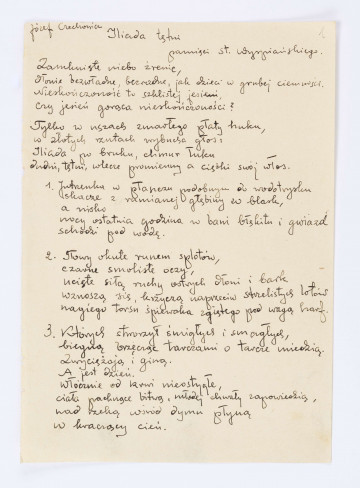 Józef Czechowicz
1
Iliada tętni
pamięci st. Wyspiańskiego.
Zamknięte niebo źrenic,
dłonie bezwładne, bezradne, jak dzieci w grubej ciemności.
Nieskończoność to szklistej jesieni,
czy jesień gorąca nieskończoności?
Tylko w uszach zmarłego płaty huku,
w złotych rzutach wybucha głos:
Iliada po bruku, chmur łuku
dudni, tętni, wlecze promienny a ciężki swój włos.
1. Jutrzenka w płaszczu podobnym do wodotrysku
skacze z rumianej głębiny w blask,
a nisko
nocy ostatnia godzina w bani błękitu i gwiazd
schodzi pod wodę.
2. Nowy okute runem splotów,
czarne smoliste oczy,
ucięte siłą ruchy ostrych dłoni i bark
wznoszą się, krzyczą naprzeciw strzelistych lotów
nagiego torsu śpiewaka zgiętego pod wzgą harf.
3. Których stworzył śmigłych i smagłych,
biegną brzęcząc tarczami o tarcze miedzią.
Zwyciężają i giną.
A jest dzień.
Włócznie od krwi nieostygłe,
ciała pachnące bitwą, młodej chwały zapowiedzią,
nad rzeką wśród dymu płyną
w kraczący cień.